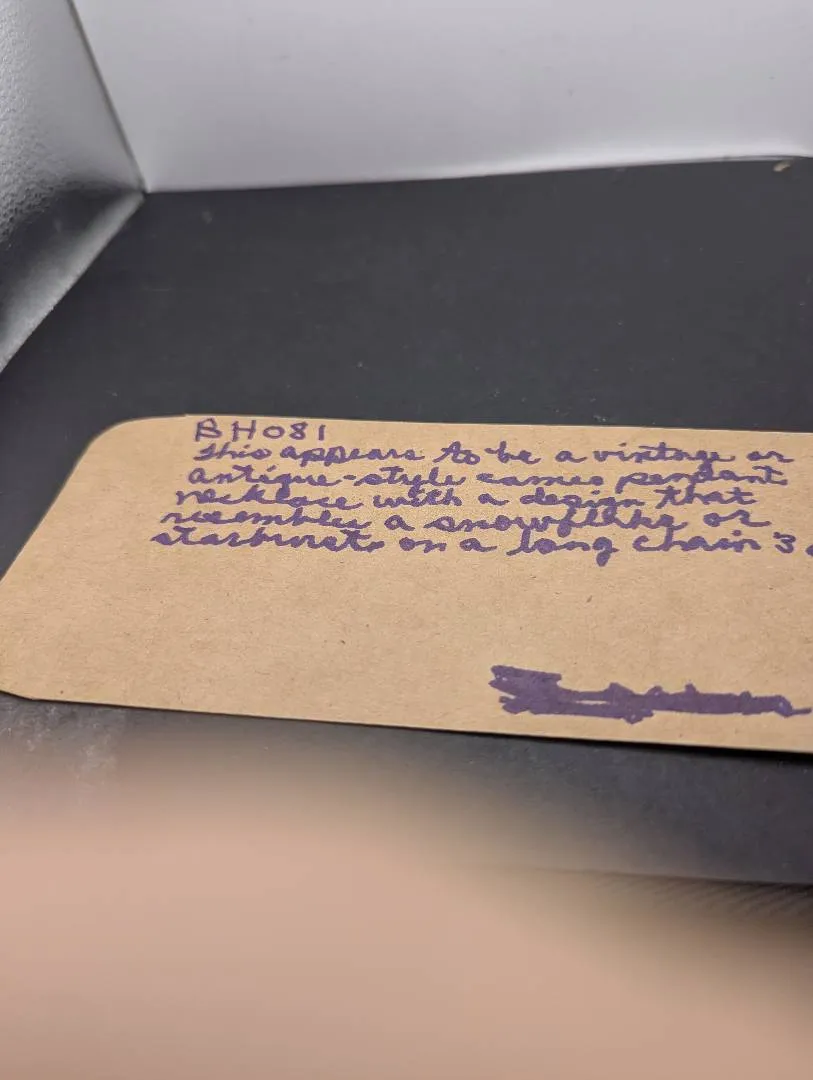 BH081
This appears to be a vintage or
antique-style cameo pendant
necklace with a design that
resembles a snowflake or
starburst, on a long chain 3